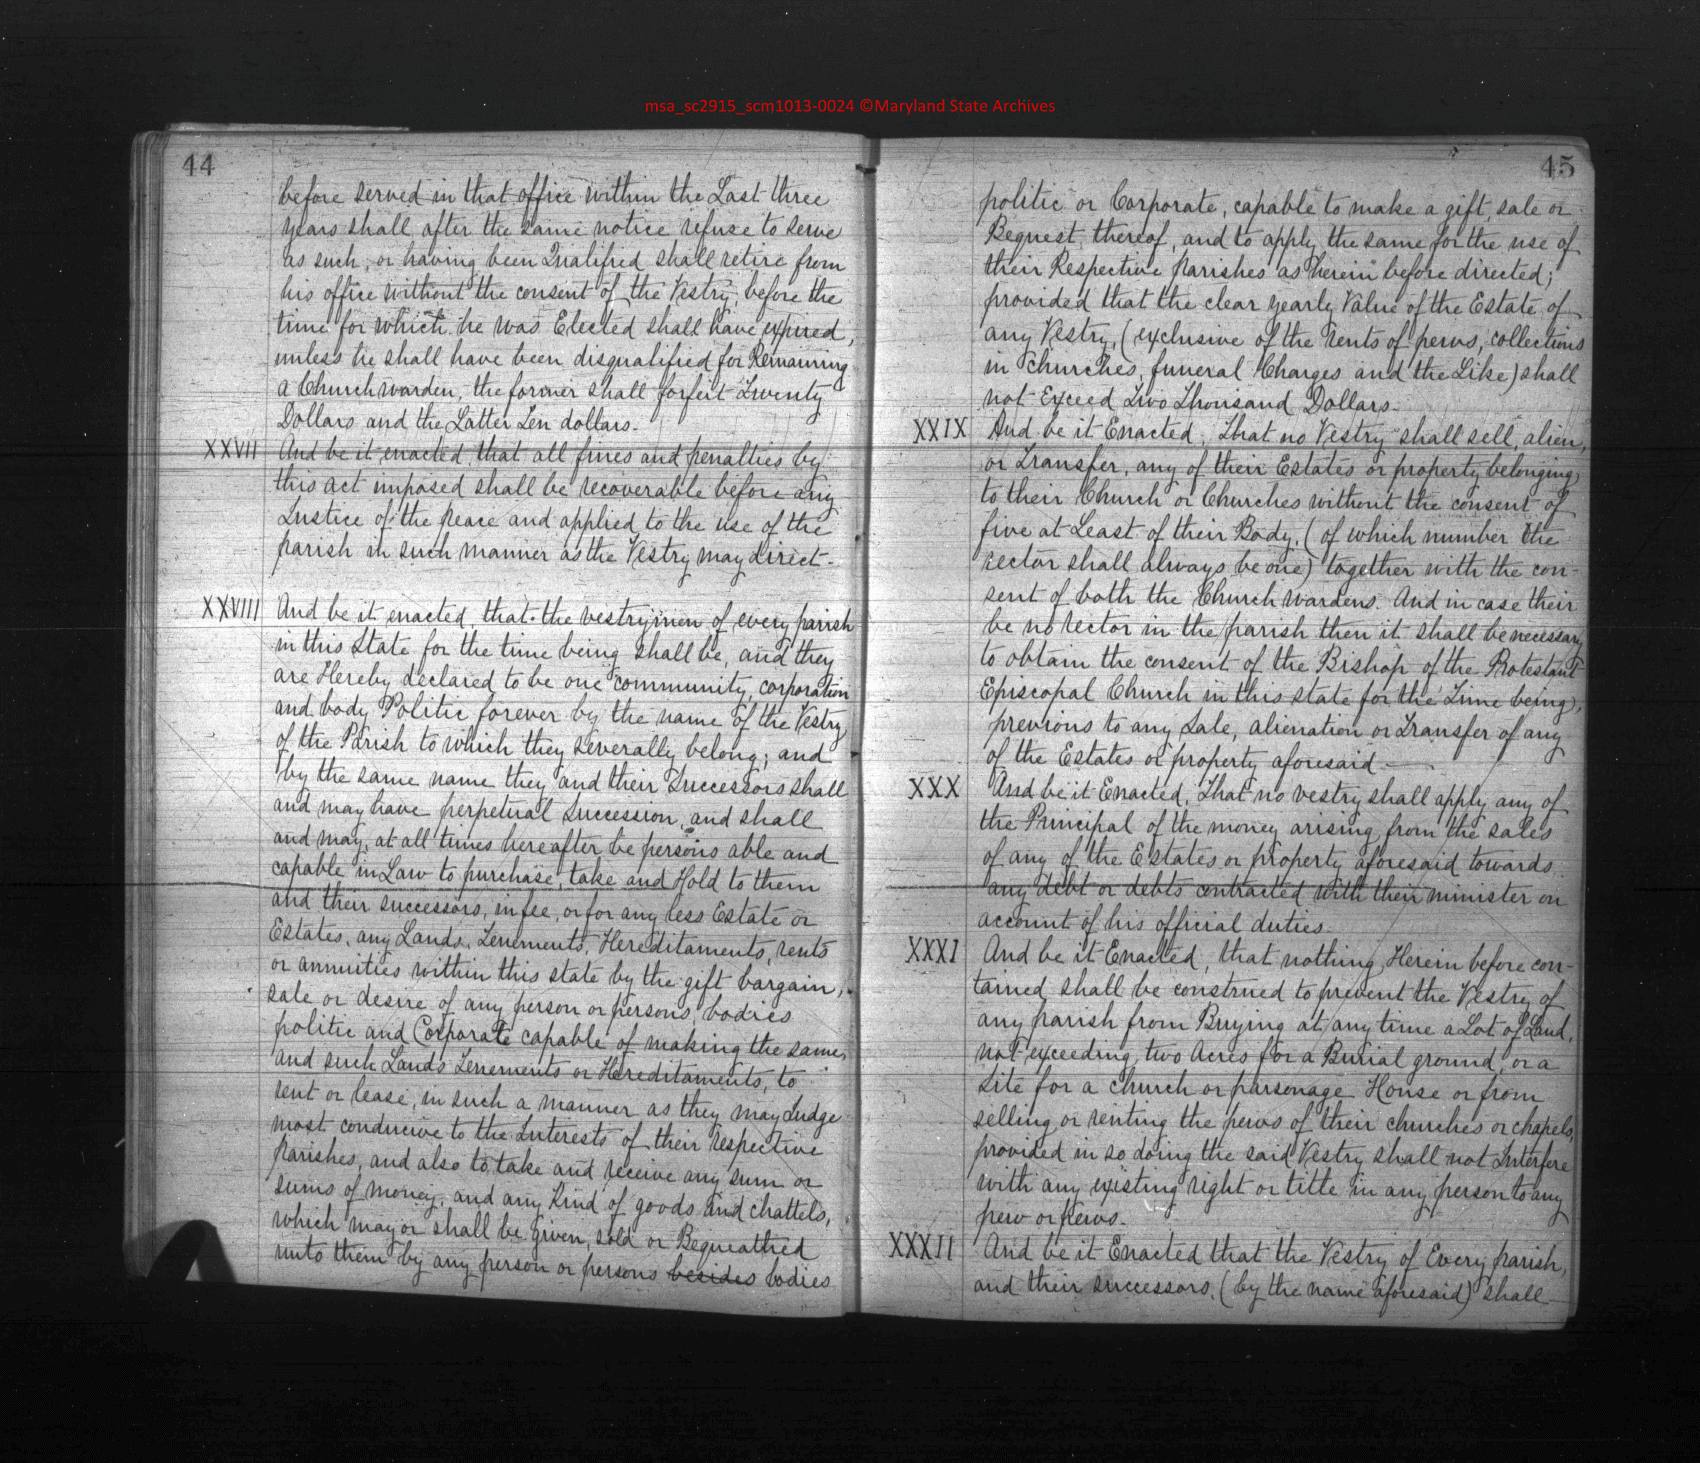 msa_sc2915_scm1013-0024 ©Maryland State Archives
44
before served in that office within the Last three
years shall after the same notice refuse to serve
as such, or having been Qualified shall retire from
his office without the consent of the Vestry, before the
time for which he was Elected shall have expired,
unless he shall have been disqualified for Remaining
a Church warden, the former shall forfeit Twenty
Dollars and the Latter Ten dollars.
XXVII And be it enacted, that all fines and penalties by
this act imposed shall be recoverable before any
Justice of the peace and applied to the use of the
parish in such manner as the Vestry may direct.
XXVIII And be it enacted, that the vestrymen of every parish
in this State for the time being shall be, and they
are Hereby declared to be one community, corporation
and body Politic forever by the name of the Vestry
of the Parish to which they severally belong; and
by the same name they and their Successors shall
and may have perpetual Succession, and shall
and may, at all times hereafter be persons able and
capable in Law to purchase, take and Hold to them
and their successors, in fee, or for any less Estate or
Estates, any Lands, Tenements, Hereditaments, rents
or annuities within this state by the gift bargain,
sale or desire of any person or persons, bodies
politic and Corporate capable of making the same,
and such Lands Tenements or Hereditaments, to
rent or lease, in such a manner as they may Judge
most conducive to the Interests of their respective
parishes, and also to take and receive any sum or
sums of money, and any Kind of goods and chattels,
which may or shall be given, sold or Bequeathed
unto them by any person or persons besides bodies
45
politic or Corporate, capable to make a gift, sale or
Bequest, thereof, and to apply the same for the use of
their Respective parishes as herein before directed;
provided that the clear yearly Value of the Estate of
any Vestry, (exclusive of the rents of pews, collections
in churches, funeral Charges and the Like) shall
not Exceed Two Thousand Dollars.
XXIX And be it Enacted, That no Vestry shall sell, alien,
or Transfer, any of their Estates or property belonging
to their Church or Churches without the consent of
five at Least of their Body, (of which number the
rector shall always be one) together with the con-
sent of both the Church wardens. And in case their
be no rector in the parish then it shall be necessary
to obtain the consent of the Bishop of the Protestant
Episcopal Church in this state for the Time being),
previous to any Sale, alienation or Transfer of any
of the Estates or property aforesaid
XXX And be it Enacted, That no vestry shall apply any of
the Principal of the money arising from the sales
of any of the Estates or property aforesaid towards
any debt or debts contracted with their minister on
account of his official duties.
XXXI And be it Enacted, that nothing Herein before con-
tained shall be construed to prevent the Vestry of
any parish from Buying at any time a Lot of Land,
not exceeding two Acres for a Burial ground, or a
Site for a church or parsonage House or from
selling or renting the pews of their churches or chapels,
provided in so doing the said Vestry shall not Interfere
with any existing right or title in any person to any
pew or pews.
XXXII And be it Enacted that the Vestry of Every parish,
and their successors, (by the name aforesaid) shall